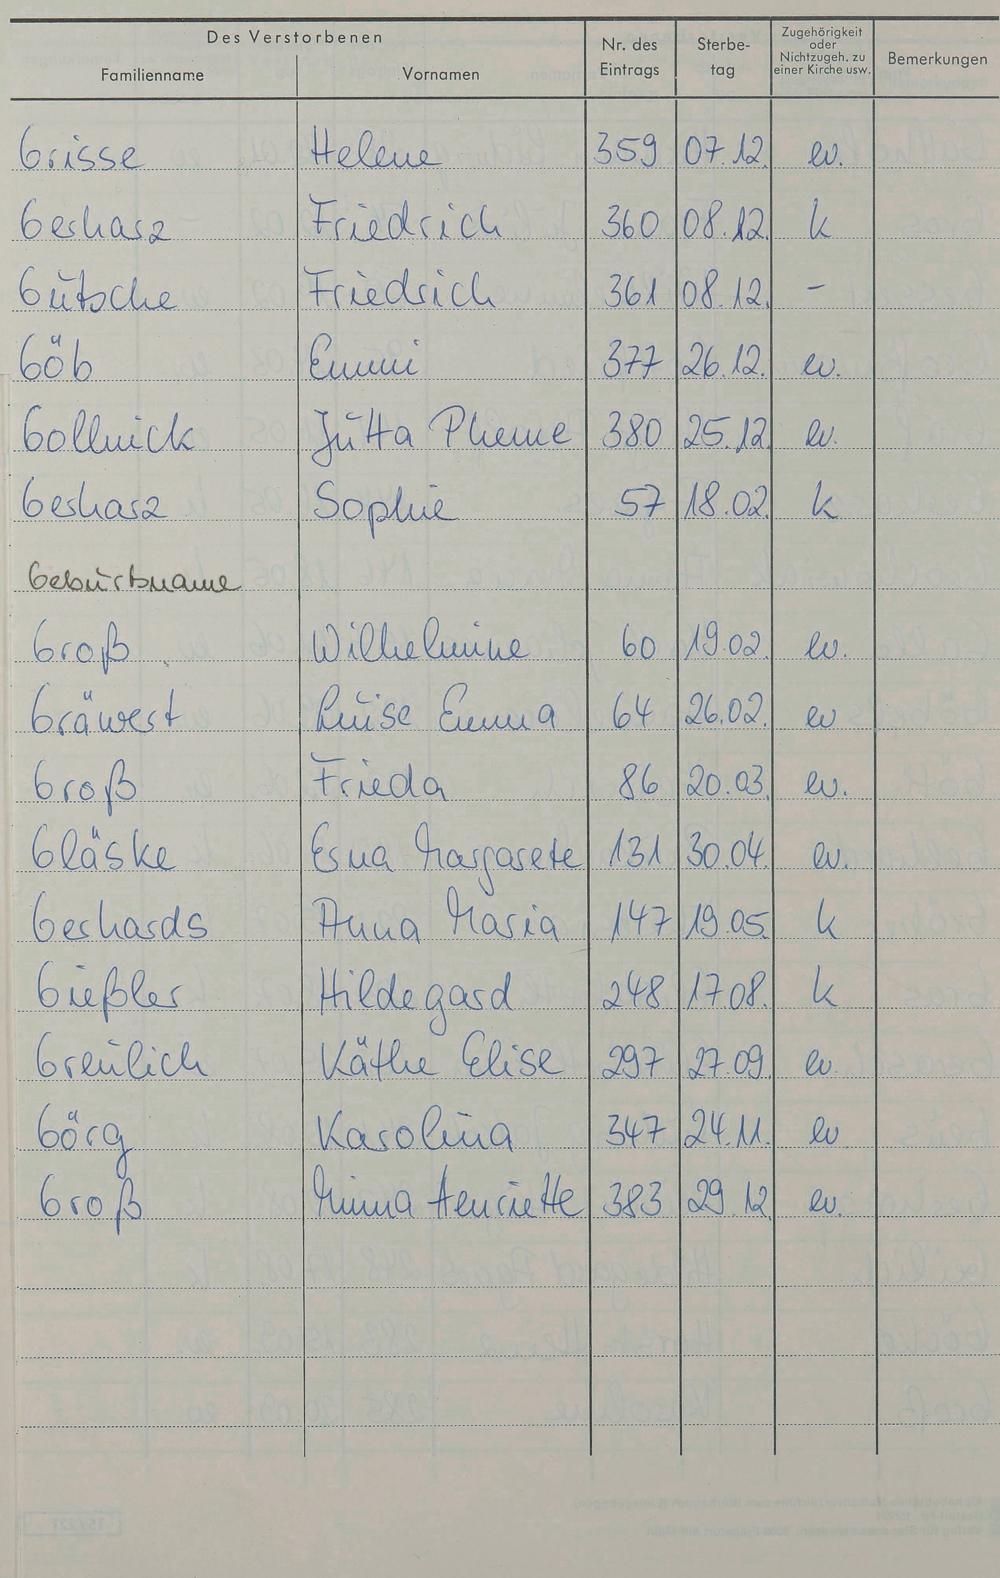 Des Verstorbenen
Familienname Vornamen Nr. des Eintrags Sterbe-tag Zugehörigkeit oder Nichtzugeh. zu einer Kirche usw. Bemerkungen
Grisse Helene 359 07.12. ev.
Gerharz Friedrich 360 08.12. k
Gutsche Friedrich 361 08.12. -
Göb Emmi 377 26.12. ev.
Gollnick Jutta 380 25.12. ev.
Gerharz Sophie 57 18.02. k
Geburtsname
Groß Wilhelmine 60 19.02. ev.
Gräwert Luise Emma 64 26.02. ev
Groß Frieda 86 20.03. ev.
Gläske Erna Margarete 131 30.04. ev.
Gerhards Anna Maria 147 19.05. k
Gießler Hildegard 248 17.08. k
Greulich Käthe Elise 297 27.09. ev.
Görg Karolina 347 24.11. ev
Groß Minna Henriette 383 29.12. ev.